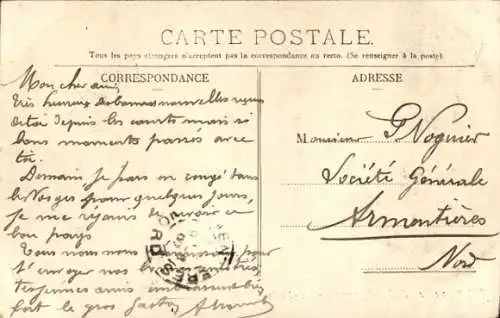 CARTE POSTALE.
Tous les pays étrangers n'acceptent pas la correspondance au recto. (Se renseigner à la poste).
CORRESPONDANCE
ADRESSE
Mon cher ami
Très heureux des bonnes nouvelles reçues
de toi depuis les courts mais si
bons moments passés avec
toi.
Demain, je pars en congé dans
les Vosges pour quelques jours,
je me réjouis de revoir ce
bon pays
Tous nous nous pour
t'envoyer nos
amis
fort le gros
Monsieur G. Noguier
Société Générale
Armentières
Nord
NORD